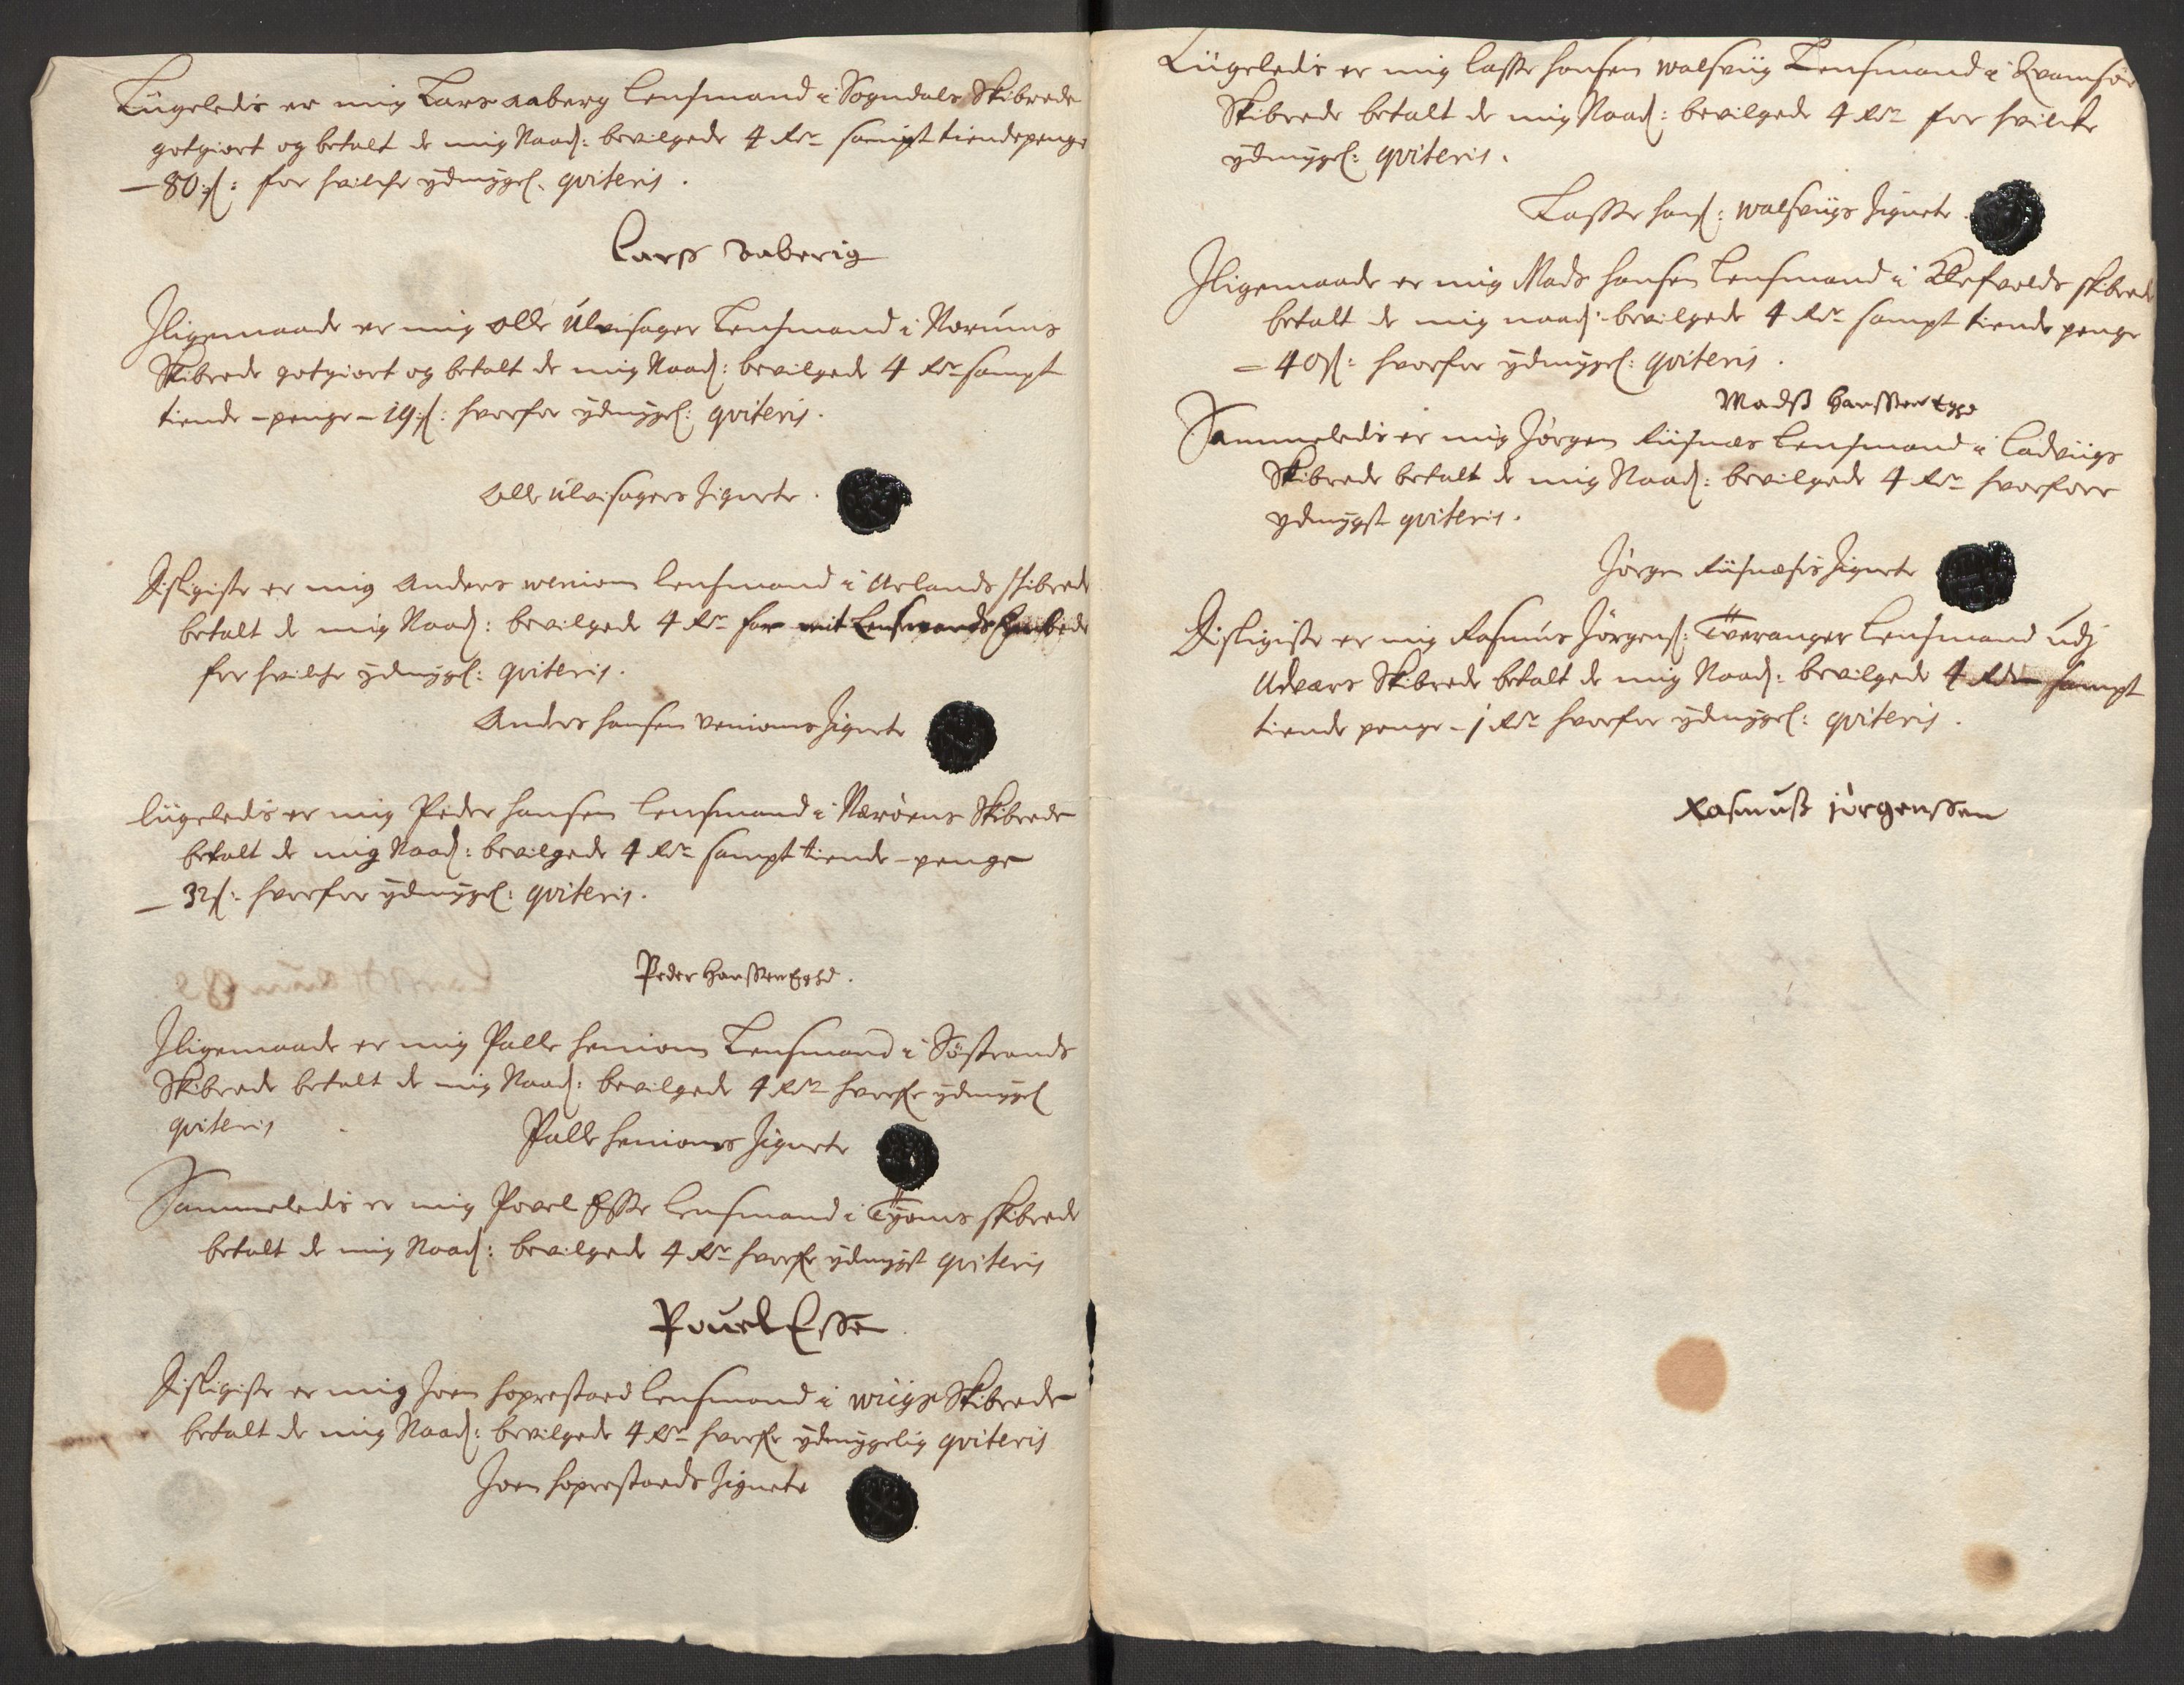 Liigeledis er mig Lars aaberg lensmand i Sogndals Skibrede
gotgiort og betalt de mig Naad: bevilgede 4 Rdr sampt tiendepenge
– 80 s: for hvilche ydmygel. qviteris.
Larß aaberig
Jligemaade er mig Olle Ulvisager Lensmand i Norums
Skibrede gotgiort og betalt de mig Naad: bevilgede 4 Rdr sampt
tiende – penge – 19 s: hvorfor ydmygel: qviteris.
Olle Ulvisagers Zignete.
Disligiste er mig Anders weniom lensmand i Urlands skibrede
betalt de mig Naad: bevilgede 4 Rdr for mit Lensmands
for hvilche ydmygel: qviteris.
Anders hansen venioms Zignete
liigeledis er mig Peder hansen lensmand i Nærøens Skibrede
betalt de mig Naad: bevilgede 4 Rdr sampt tiende – penge
– 32 s: hvorfor ydmygel: qviteris.
Peder Hanssen Eghd.
Jligemaade er mig Palle heniom Lensmand i Søstrands
Skibrede betalt de mig Naad: bevilgede 4 Rdr hvorfor ydmygel
qviteris
Palle henioms Zignete
Sammeledis er mig Povel Esse lensmand i Tyoms skibrede
betalt de mig Naad: bevilgede 4 Rdr hvorfor ydmygst qviteris
Pouel Esse
Disligiste er mig Joen hoprestad lensmand i wiigs Skibrede
betalt de mig Naad: bevilgede 4 Rdr hvorfor ydmygelig qviteris
Joen hoprestads Zignete
Liigeledis er mig lasse hansen walsviig Lensmand i Qvamsøe
Skibrede betalt de mig Naad: bevilgede 4 Rdr for hvilcke
ydmygel: qviteris.
Lasse hans: walsviigs Zignete.
Jligemaade er mig Mads hansen Lensmand i Klefvolds skibrede
betalt de mig naad: bevilgede 4 Rdr sampt tiende penge
– 40 s: hvorfor ydmygel: qviteris.
Madß Hanssen Eghd
Sammeledis er mig Jørgen Riisnæs Lensmand i Ladviigs
Skibrede betalt de mig Naad: bevilgede 4 Rdr hvorforr
ydmygst qviteris.
Jørgen Riisnæsis Zignete
Disligiste er mig Rasmus Jørgens: Tveranger lensmand udj
Udvaers Skibrede betalt de mig Naad: bevilgede 4 Rdr sampt
tiende penge – 1 Rdr hvorfor ydmygel: qviteris.
Rasmuß jørgenssen